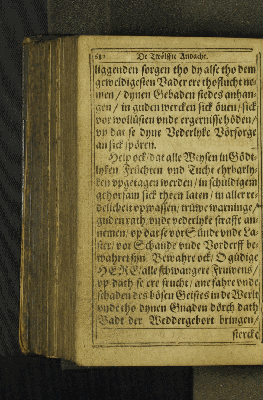 De Twölffte Andacht.
liggenden sorgen tho dy alse tho dem
geweldigesten Vader ere thoflucht ne-
men / dynen Geboden stedes anhan-
gen / in guden wercken sick öuen / sick
vor wollüsten vnde ergernisse höden /
vp dat se dyne Vederlyke Vörsorge
an sick spören.
Help ock / dat alle Weysen in Gödt-
lyken Früchten vnd Tucht ehrbarly-
ken vpgetagen werden / in schüldigem
gehorsam sick theen laten / in aller re-
delicheit opwassen / trüwe
guden rath vnde vederlyke straffe an-
nemen / vp dat se vor Sünde vnde La-
ster / vor Schande vnde Vorderff be-
wahret syn. Bewahre ock / O güdige
HERE / alle schwangere Fruwens /
vp dath se ere frucht / ane fahre vnde
schaden des bösen Geistes in de Werlt
vnde tho dynen Gnaden dörch dath
Badt der Weddergebort bringen /
stercke